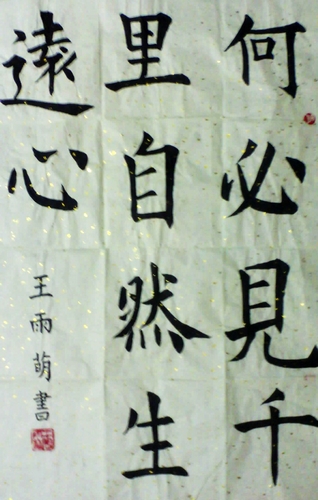 何必見千
里自然生
遠心
王雨萌書